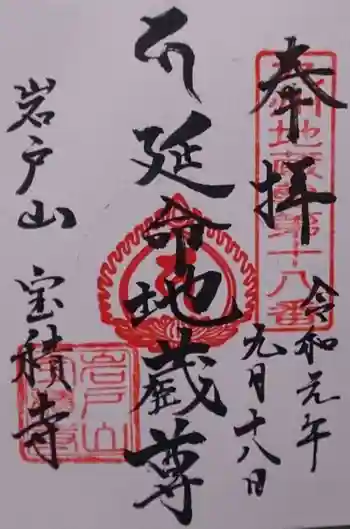 奉拝
地蔵尊第十八番
令和元年
九月十八日
延命地蔵尊
岩戸山 宝積寺
岩戸山